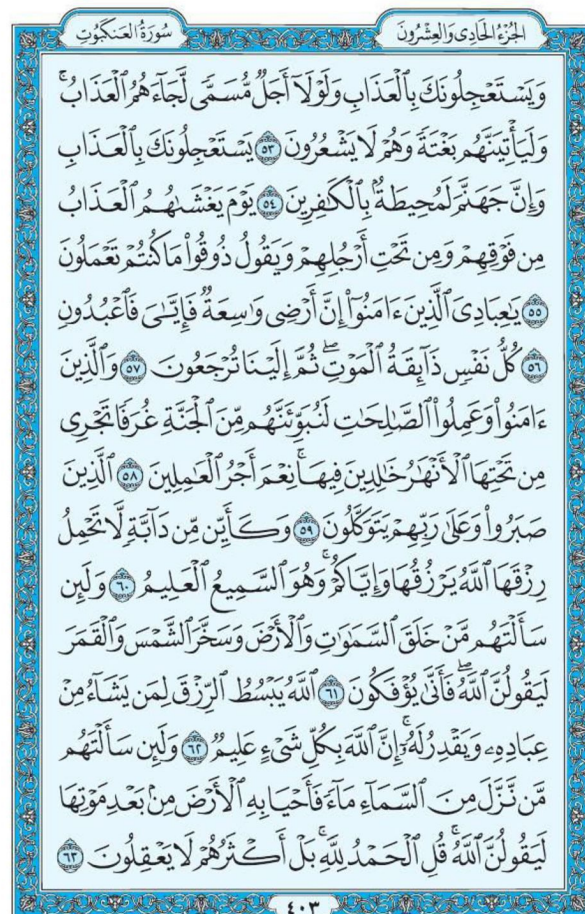 الجُزْءُ الحَادِي وَالعِشْرُونَ
سُورَةُ العَنكَبُوتِ
وَيَسْتَعْجِلُونَكَ بِالْعَذَابِ وَلَوْلَآ أَجَلٌ مُّسَمًّى لَّجَآءَهُمُ الْعَذَابُۚ
وَلَيَأْتِيَنَّهُم بَغْتَةً وَهُمْ لَا يَشْعُرُونَ ٥٣ يَسْتَعْجِلُونَكَ بِالْعَذَابِ
وَإِنَّ جَهَنَّمَ لَمُحِيطَةٌۢ بِالْكَٰفِرِينَ ٥٤ يَوْمَ يَغْشَىٰهُمُ الْعَذَابُ
مِن فَوْقِهِمْ وَمِن تَحْتِ أَرْجُلِهِمْ وَيَقُولُ ذُوقُوا۟ مَا كُنتُمْ تَعْمَلُونَ
٥٥ يَٰعِبَادِىَ الَّذِينَ ءَامَنُوٓا۟ إِنَّ أَرْضِى وَٰسِعَةٌ فَإِيَّٰىَ فَاعْبُدُونِ
٥٦ كُلُّ نَفْسٍ ذَآئِقَةُ الْمَوْتِۖ ثُمَّ إِلَيْنَا تُرْجَعُونَ ٥٧ وَالَّذِينَ
ءَامَنُوا۟ وَعَمِلُوا۟ الصَّٰلِحَٰتِ لَنُبَوِّئَنَّهُم مِّنَ الْجَنَّةِ غُرَفًا تَجْرِى
مِن تَحْتِهَا الْأَنْهَٰرُ خَٰلِدِينَ فِيهَاۚ نِعْمَ أَجْرُ الْعَٰمِلِينَ ٥٨ الَّذِينَ
صَبَرُوا۟ وَعَلَىٰ رَبِّهِمْ يَتَوَكَّلُونَ ٥٩ وَكَأَيِّن مِّن دَآبَّةٍ لَّا تَحْمِلُ
رِزْقَهَا اللَّهُ يَرْزُقُهَا وَإِيَّاكُمْۚ وَهُوَ السَّمِيعُ الْعَلِيمُ ٦٠ وَلَئِن
سَأَلْتَهُم مَّنْ خَلَقَ السَّمَٰوَٰتِ وَالْأَرْضَ وَسَخَّرَ الشَّمْسَ وَالْقَمَرَ
لَيَقُولُنَّ اللَّهُۖ فَأَنَّىٰ يُؤْفَكُونَ ٦١ اللَّهُ يَبْسُطُ الرِّزْقَ لِمَن يَشَآءُ مِنْ
عِبَادِهِۦ وَيَقْدِرُ لَهُۥٓۚ إِنَّ اللَّهَ بِكُلِّ شَىْءٍ عَلِيمٌ ٦٢ وَلَئِن سَأَلْتَهُم
مَّن نَّزَّلَ مِنَ السَّمَآءِ مَآءً فَأَحْيَا بِهِ الْأَرْضَ مِنۢ بَعْدِ مَوْتِهَا
لَيَقُولُنَّ اللَّهُۚ قُلِ الْحَمْدُ لِلَّهِۚ بَلْ أَكْثَرُهُمْ لَا يَعْقِلُونَ ٦٣
٤٠٣